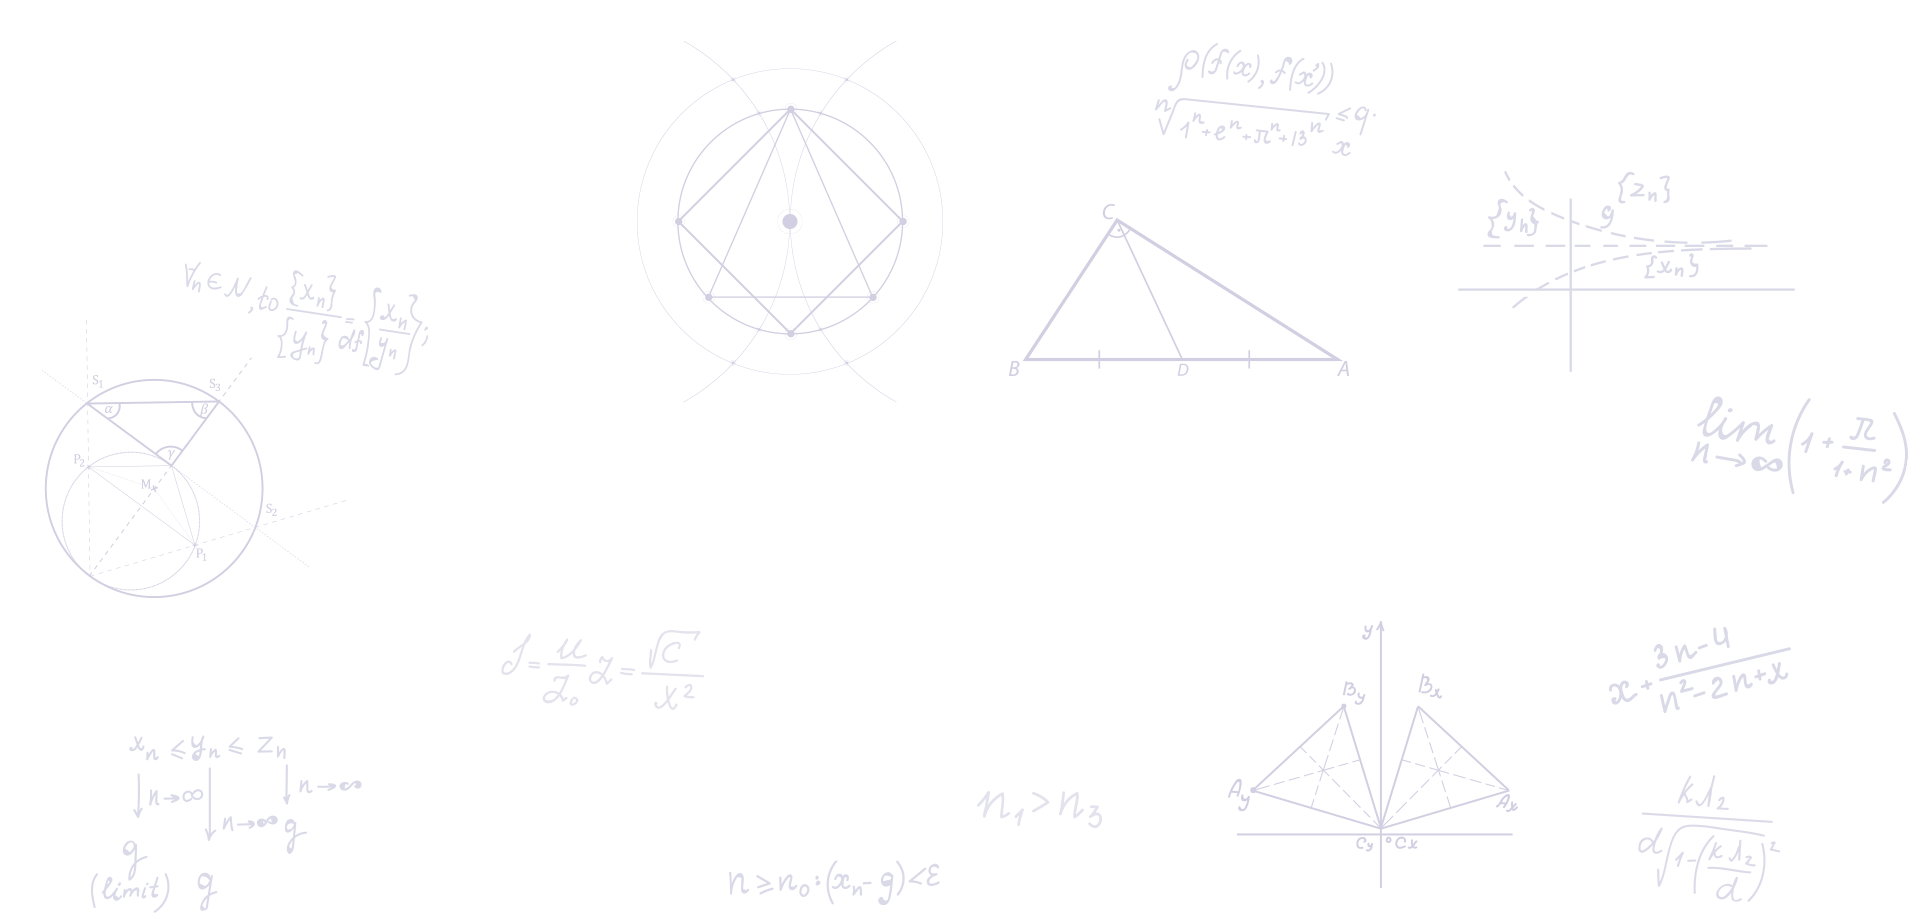 ρ(f(x), f(x'))
ⁿ√1ⁿ+eⁿ+πⁿ+13ⁿ ≤ g.
x
{yₙ} g {zₙ}
{xₙ}
C
B D A
∀n ∈ N, to {xₙ}/{yₙ} =df {xₙ/yₙ};
S₁ S₃
α β
γ
P₂
M
S₂
P₁
lim n→∞ (1 + π/1+n²)
J = u/Z₀ Z = √C/x²
y
By Bx
Ay Ax
Cy ° Cx
x + 3n-4/n²-2n+x
xₙ ≤ yₙ ≤ zₙ
n→∞ n→∞
n→∞ g
g
(limit) g
n₁ > n₃
n ≥ n₀ : (xₙ - g) < ε
kλ₂
d√1-(kλ₂/d)²